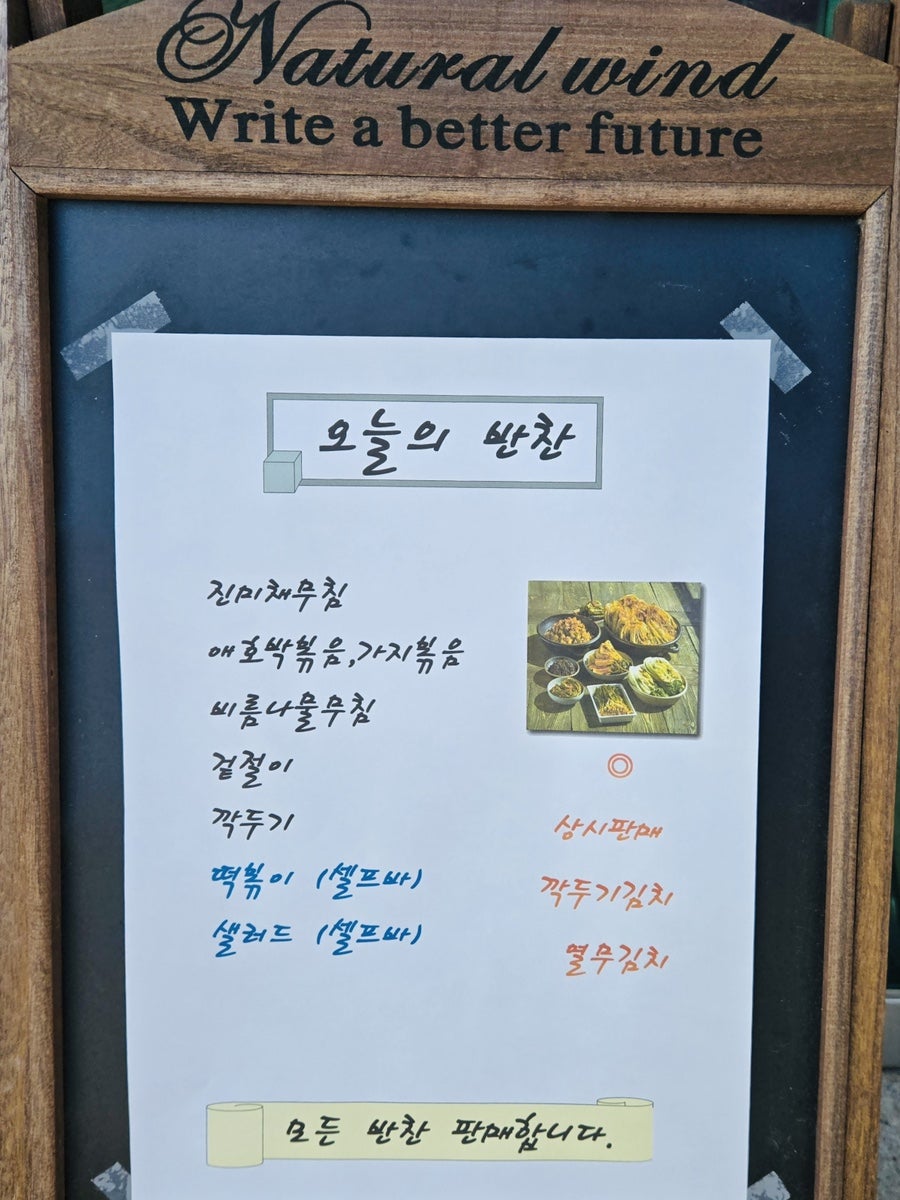 Natural wind
Write a better future
오늘의 반찬
진미채무침
애호박볶음,가지볶음
비름나물무침
겉절이
깍두기
떡볶이 (셀프바)
샐러드 (셀프바)
◎
상시판매
깍두기김치
열무김치
모든 반찬 판매합니다.